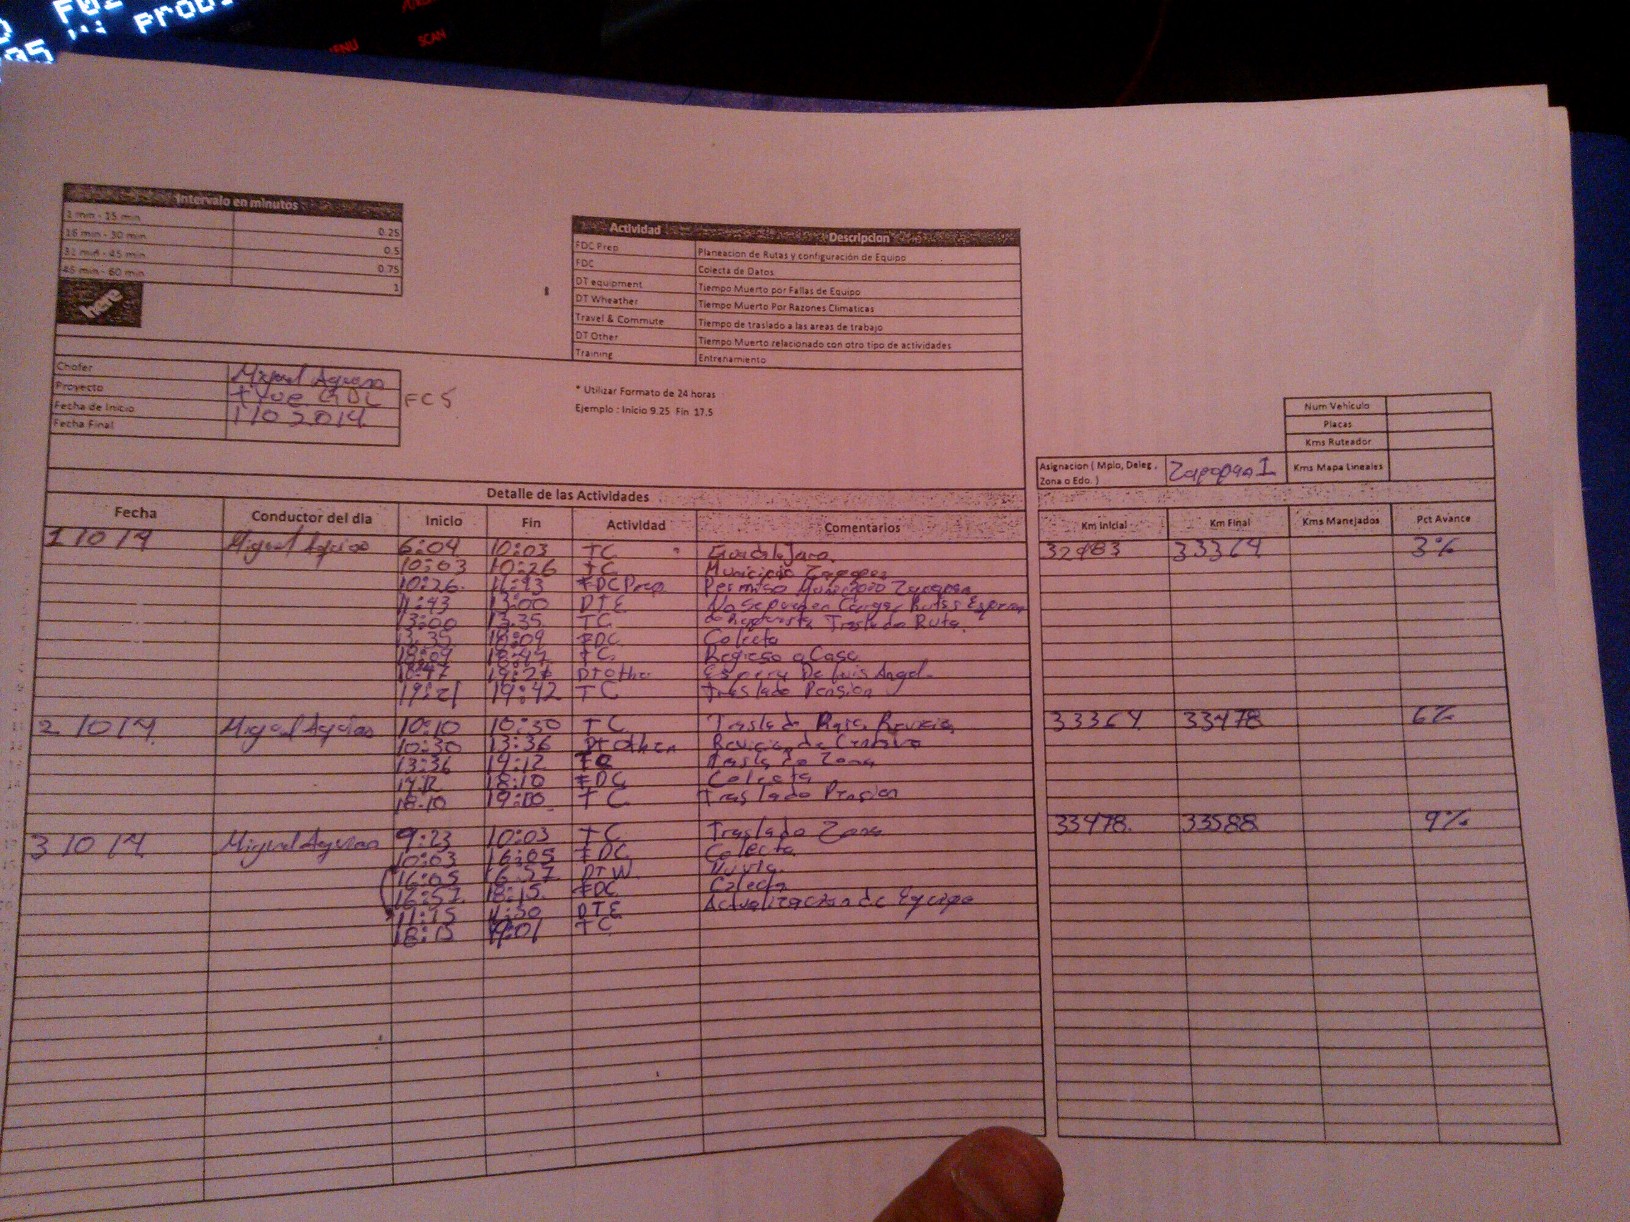 MENU
SCAN
Intervalo en minutos
1 min - 15 min 0.25
16 min - 30 min 0.5
31 min - 45 min 0.75
45 min - 60 min 1
here
Actividad Descripcion
FDC Prep Planeacion de Rutas y configuración de Equipo
FDC Colecta de Datos
DT equipment Tiempo Muerto por Fallas de Equipo
DT Wheather Tiempo Muerto Por Razones Climaticas
Travel & Commute Tiempo de traslado a las areas de trabajo
DT Other Tiempo Muerto relacionado con otro tipo de actividades
Training Entrenamiento
Chofer Miguel
Proyecto GDL FC5
Fecha de Inicio 1 10 2014
Fecha Final
* Utilizar Formato de 24 horas
Ejemplo : Inicio 9.25 Fin 17.5
Num Vehiculo
Placas
Kms Ruteador
Kms Mapa Lineales
Asignacion ( Mpio, Deleg , Zona o Edo. ) Zapopan 1
Detalle de las Actividades
Fecha Conductor del dia Inicio Fin Actividad Comentarios Km Inicial Km Final Kms Manejados Pct Avance
1 10 14 Miguel 6:04 10:03 TC Guadalajara 33364 3%
10:03 10:26 TC Municipio Zapopan
10:26 11:43 FDC Prep Permiso Municipio Zapopan
11:43 13:00 DTE No Se pueden Cargar Rutas
13:00 13:35 TC Traslado Ruta.
13:35 18:09 FDC Colecta
18:09 18:47 TC Regreso a Casa
18:47 DT Othe Espera De Luis Angel
19:21 19:42 TC Traslado Pension
2 10 14 Miguel 10:10 10:30 TC Traslado 33364 33478 6%
10:30 13:36 DT Other
13:36 14:12 TC Traslado Zona
14:12 18:10 FDC Colecta
18:10 19:00 TC Traslado Pension
3 10 14 Miguel 9:23 10:03 TC Traslado Zona 33478 33588 9%
10:03 16:05 FDC Colecta
16:05 16:57 DTW lluvia
16:57 18:15 FDC Colecta
11:15 11:30 DTE Actualizacion de Equipo
18:15 19:01 TC